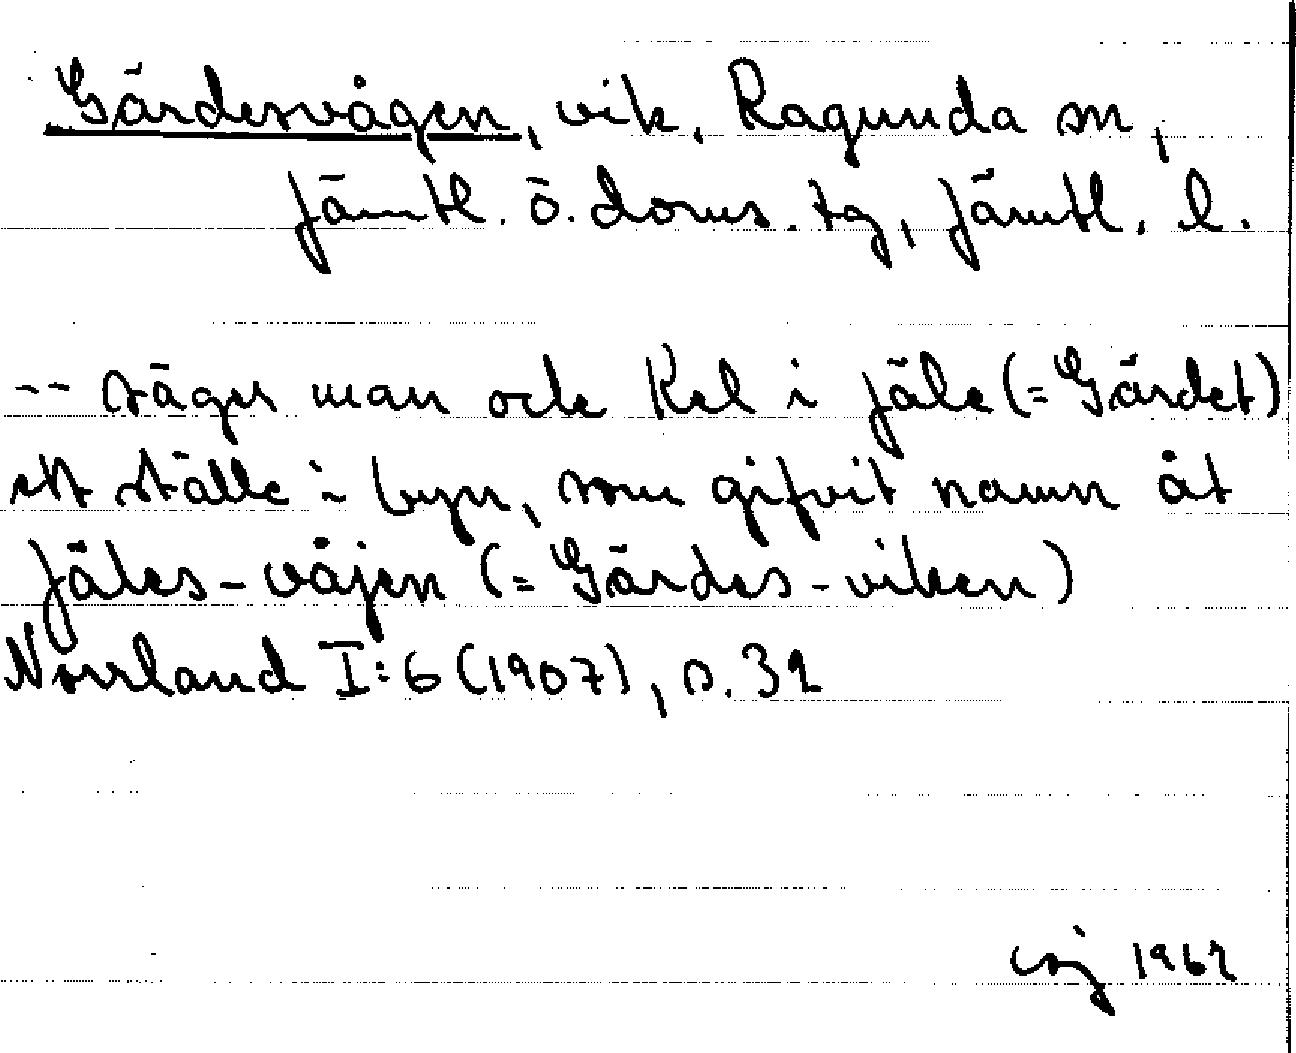 Gärdesvågen, vik, Ragunda sn,
Jämtl. ö. doms. tg, Jämtl. l.
-- säger man ock Kel i Jäle (= Gärdet)
ett ställe i byn, som gifvit namn åt
Jäles-våjen (= Gärdes-viken)
Norrland I:6 (1907), s. 32
1962